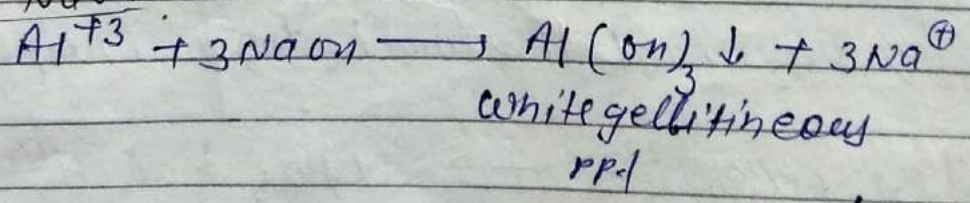 Al+3 + 3NaOH ⟶ Al(OH)3 ↓ + 3Na⊕
white gellitineous
ppt